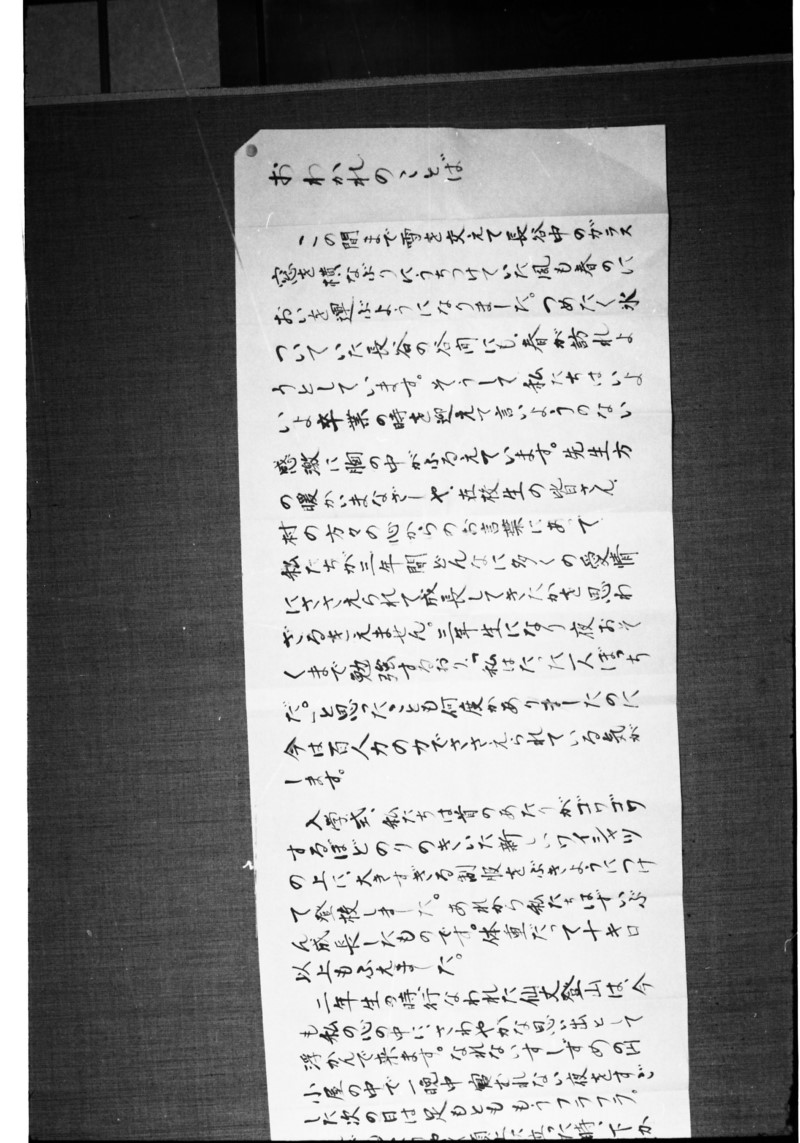 おわかれのことば
この間まで雪を交えて長谷中のガラス
窓を横なぶりにうちつけていた風も春のに
おいを運ぶようになりました。つめたく氷
ついていた長谷の谷間にも、春が訪れよ
うとしています。そうして私たちはいよ
いよ卒業の時を迎えて言いようのない
感激に胸の中がふるえています。先生方
の暖かいまなざしや、在校生の皆さん、
村の方々の心からのお言葉にあって
私たちが三年間どんなに多くの愛情
にささえられて成長してきたかを思わ
ざるをえません。三年生になり夜おそ
くまで勉強するおり、「私はたった一人ぼっち
だ。」と思ったことも何度かありましたのに
今は百人力の力でささえられている気が
します。
入学式、私たちは首のあたりがゴワゴワ
するほどのりのきいた新しいワイシャツ
の上に、大きすぎる制服をぶきようにつけ
て登校しました。あれから私たちはずいぶ
ん成長したものです。体重だって十キロ
以上もふえました。
二年生の時行なわれた仙丈登山は、今
も私の心の中にさわやかな思い出として
浮かんで来ます。なれないすしずめの山
小屋の中で一晩中寝られない夜をすご
した次の日は足もとももうフラフラ。